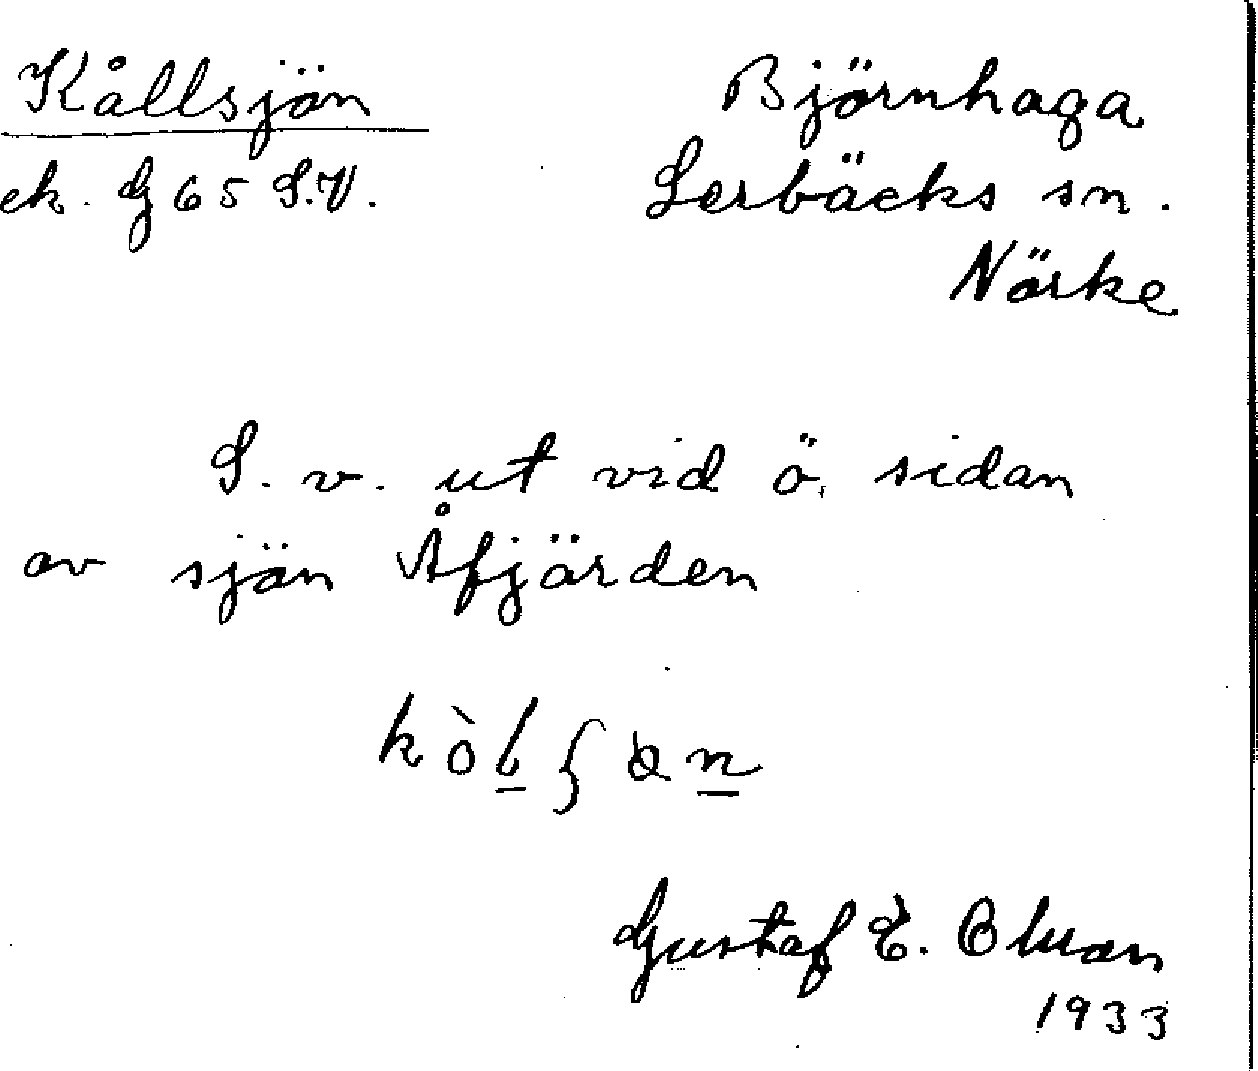 Kållsjön
Björnhaga
ek. G 65 S.V.
Lerbäcks sn.
Närke
S. v. ut vid ö. sidan
av sjön Åfjärden
Gustaf E.
1933